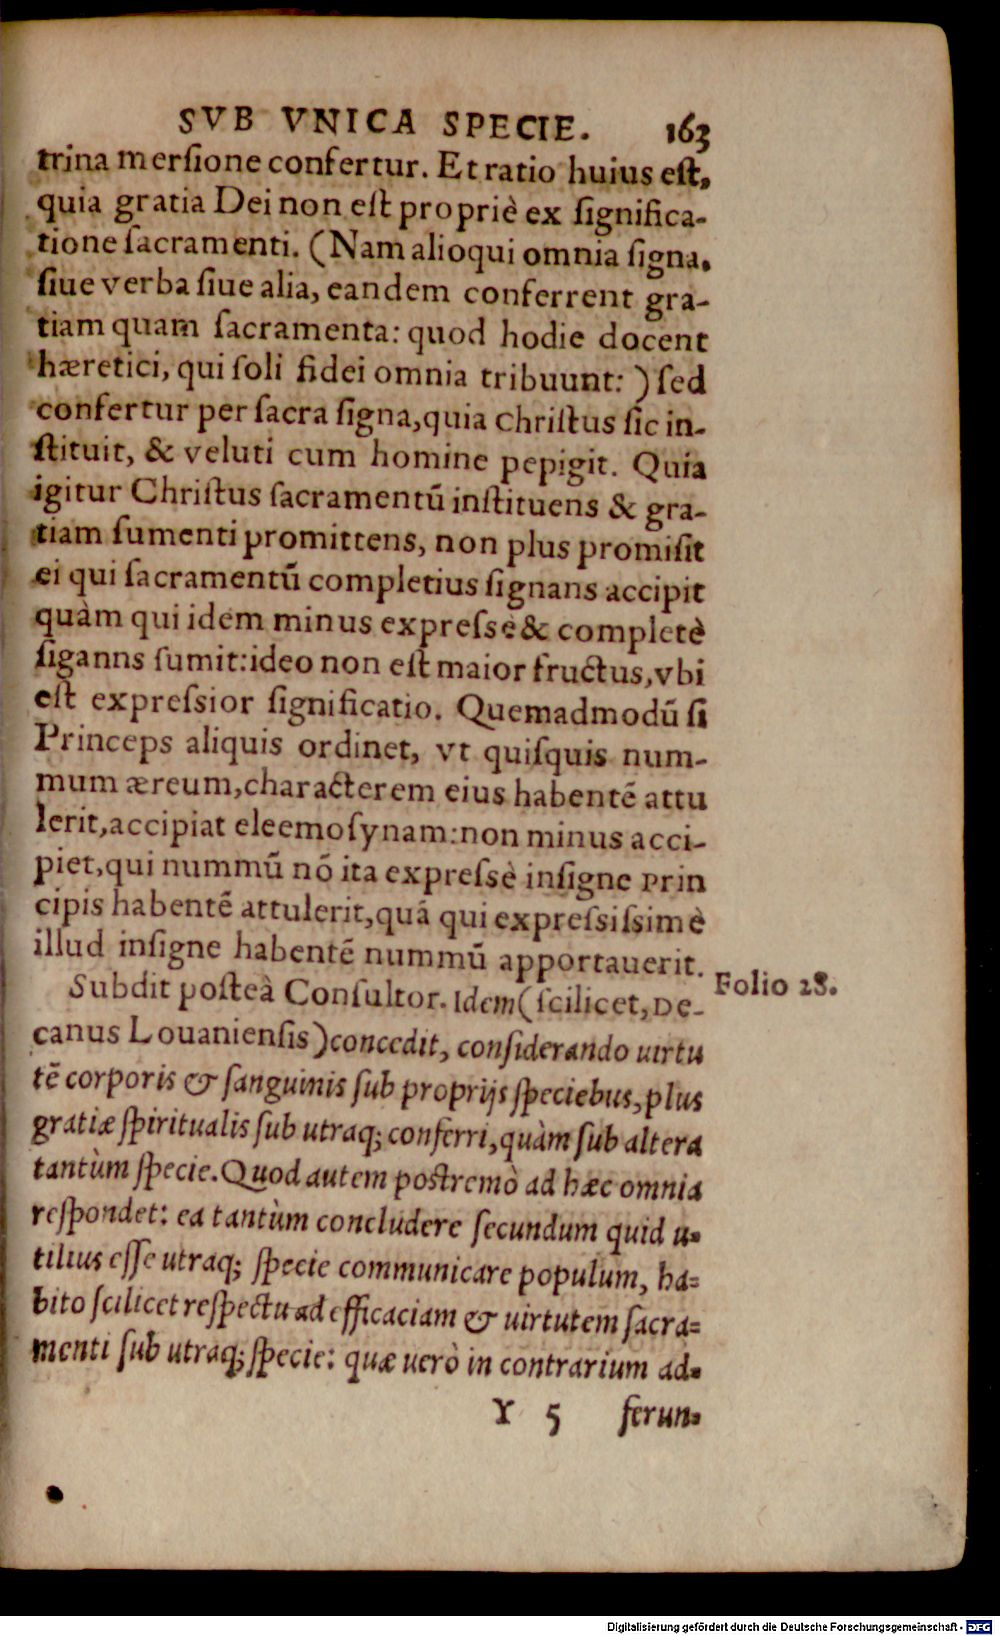 SVB VNICA SPECIE. 163
trina mersione confertur. Et ratio huius est,
quia gratia Dei non est propriè ex significa-
tione sacramenti. (Nam alioqui omnia signa,
siue verba siue alia, eandem conferrent gra-
tiam quam sacramenta: quod hodie docent
hæretici, qui soli fidei omnia tribuunt:) sed
confertur per sacra signa, quia Christus sic in-
stituit, & veluti cum homine pepigit. Quia
igitur Christus sacramentū instituens & gra-
tiam sumenti promittens, non plus promisit
ei qui sacramentū completius signans accipit
quàm qui idem minus expressè & completè
siganns sumit: ideo non est maior fructus, vbi
est expressior significatio. Quemadmodū si
Princeps aliquis ordinet, vt quisquis num-
mum æreum, characterem eius habentē attu
lerit, accipiat eleemosynam: non minus acci-
piet, qui nummū nō ita expressè insigne Prin
cipis habentē attulerit, quā qui expressissimè
illud insigne habentē nummū apportauerit.
Subdit posteà Consultor. Idem (scilicet, De-
Folio 28.
canus Louaniensis) concedit, considerando uirtu
tē corporis & sanguinis sub proprijs speciebus, plus
gratiæ spiritualis sub utraq; conferri, quàm sub altera
tantùm specie. Quod autem postremò ad hæc omnia
respondet: ea tantùm concludere secundum quid u-
tilius esse utraq; specie communicare populum, ha-
bito scilicet respectu ad efficaciam & uirtutem sacra-
menti sub utraq; specie: quæ uerò in contrarium ad-
Y 5 ferun-
Digitalisierung gefördert durch die Deutsche Forschungsgemeinschaft - DFG